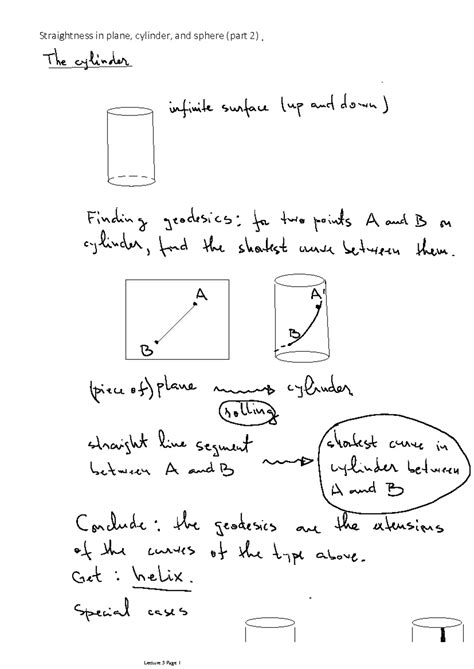 Straightness in plane, cylinder, and sphere (part 2).
The cylinder
infinite surface (up and down)
Finding geodesics: for two points A and B on
cylinder, find the shortest curve between them.
A
B
A'
B
(piece of) plane cylinder
rolling
straight line segment
between A and B
shortest curve in
cylinder between
A and B
Conclude: the geodesics are the extensions
of the curves of the type above.
Get: helix.
Special cases
Lecture 3 Page 1